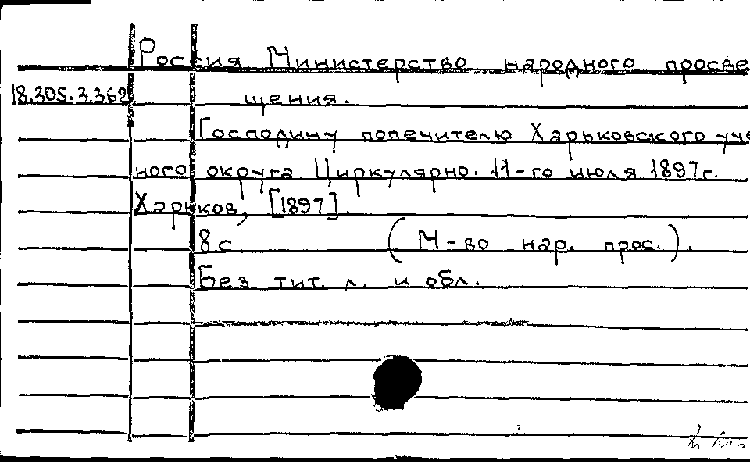 Россия Министерство народного просве
18.305.3.362 щения.
Господину попечителю Харьковского уче
ного округа Циркулярно. 11-го июля 1897г.
Харьков, [1897].
8с (М-во нар. прос.).
Без тит. л. и обл.